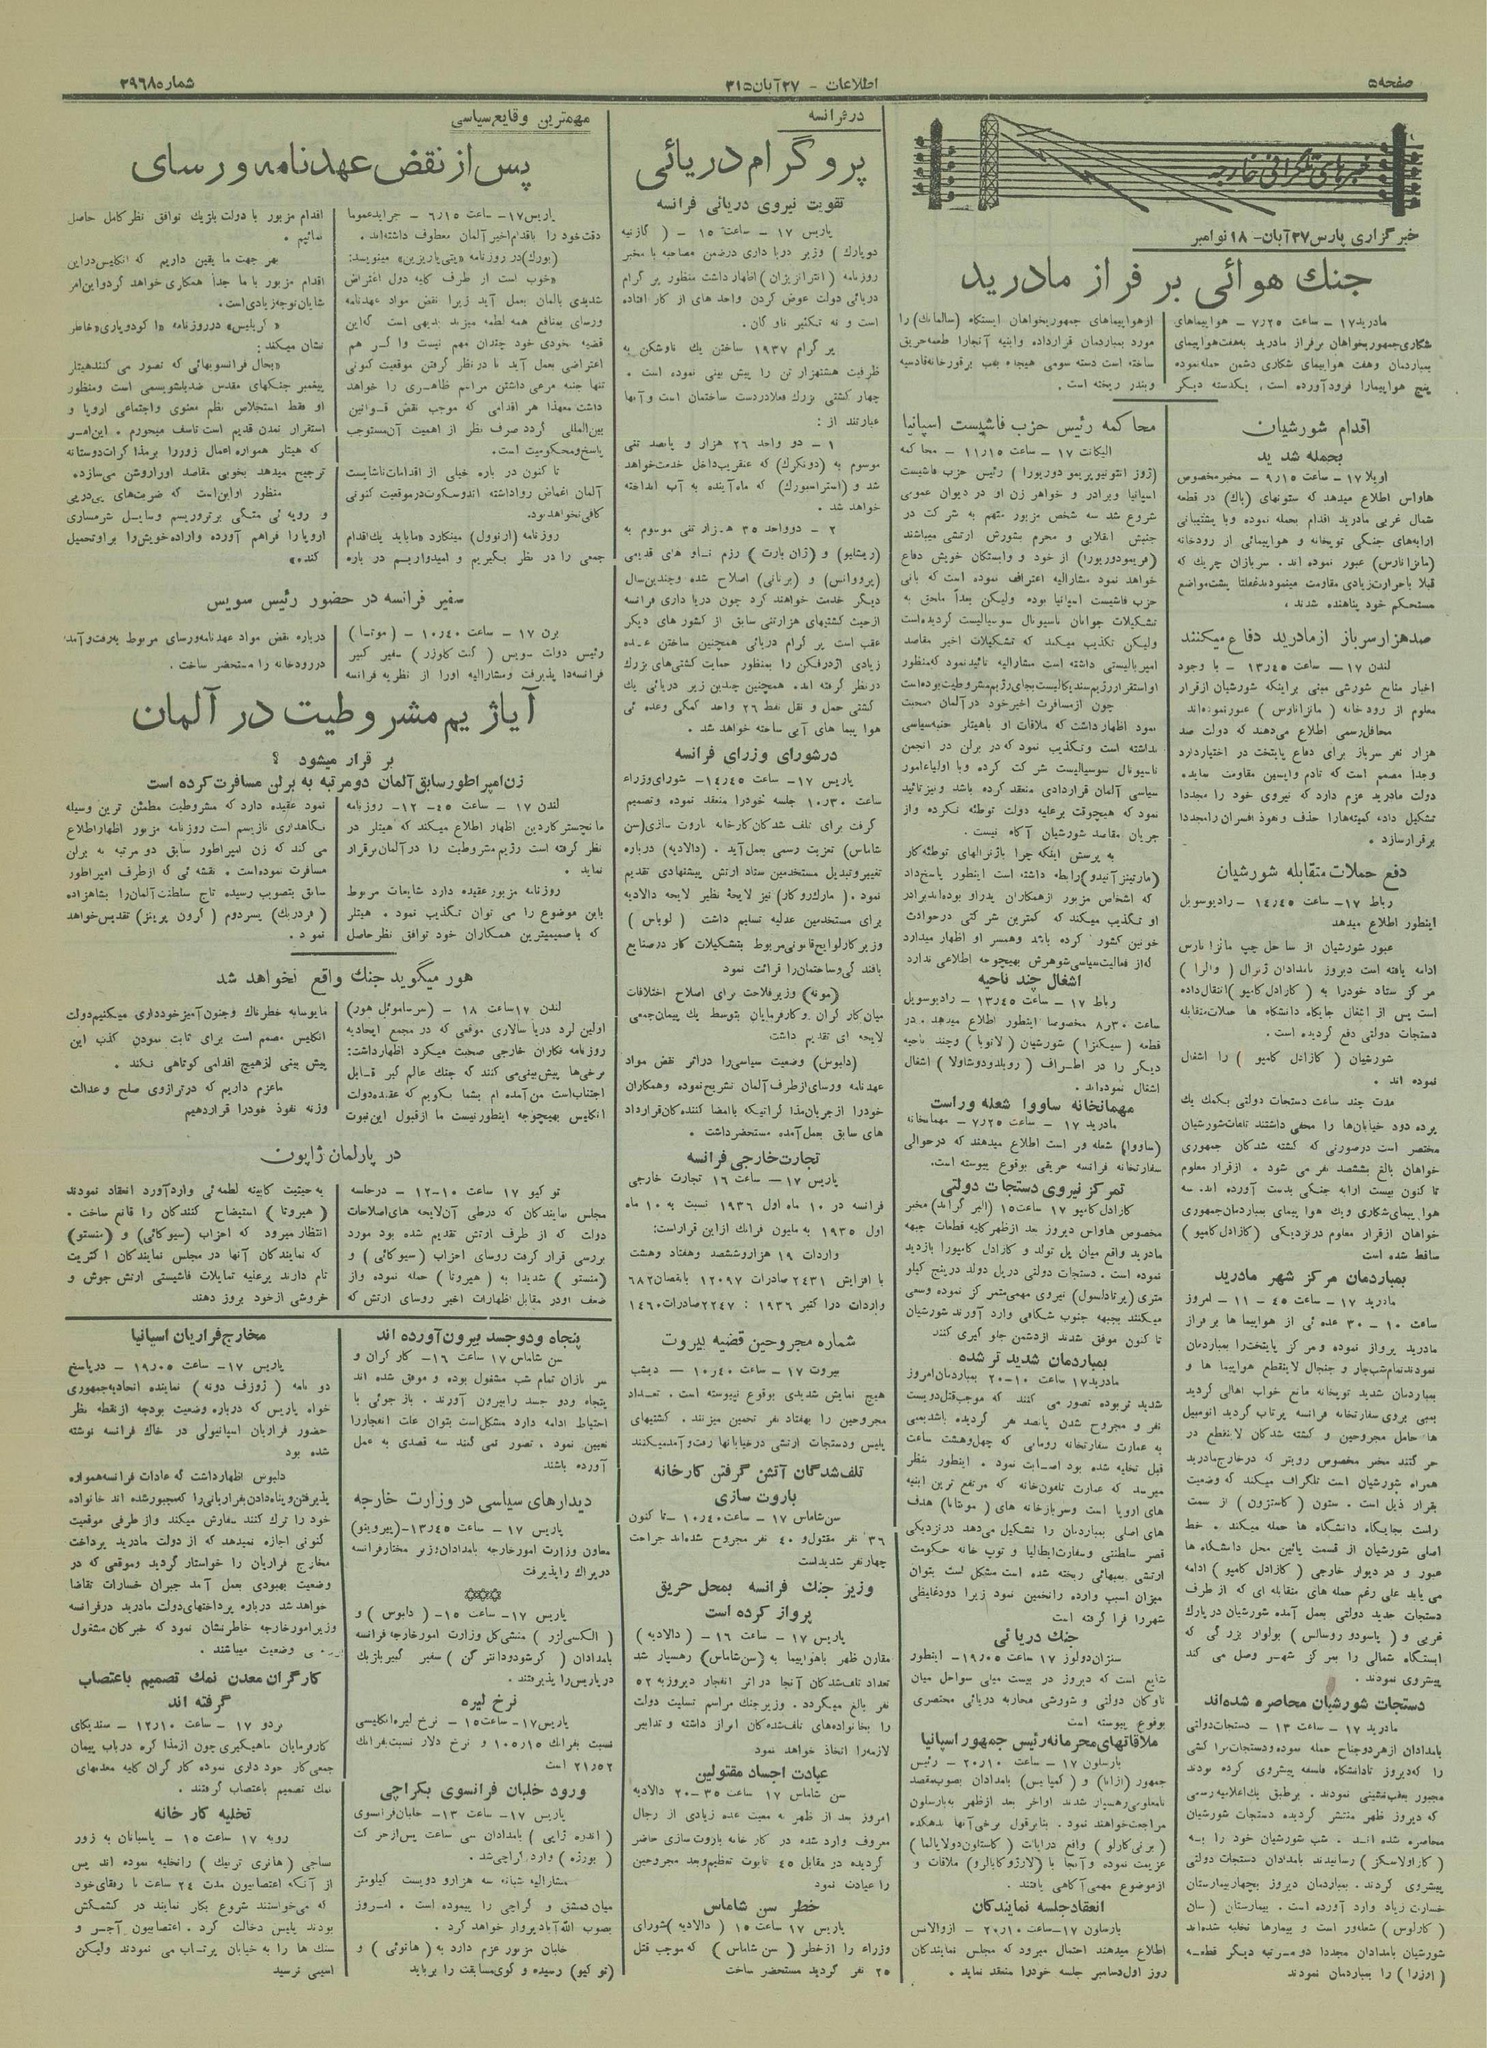 صفحه ۵
اطلاعات - ۲۷ آبان ۳۱۵
شماره ۳۹۶۸
خبرهای تلگرافی خارجه
خبرگزاری پارس ۲۷ آبان - ۱۸ نوامبر
جنك هوائی بر فراز مادرید
مادرید ۱۷ - ساعت ۷٫۲۵ - هواپیماهای
شکاری جمهوریخواهان برفراز مادرید به هفت هواپیمای
بمباردمان وهفت هواپیمای شکاری دشمن حمله نموده
پنج هواپیمارا فرود آورده است. یکدسته دیگر
از هواپیماهای جمهوریخواهان ایستگاه (سالامانك) را
مورد بمباردمان قرارداده وابنیه آنجارا طعمه حریق
ساخته است دسته سومی هیجده بمب برقورخانه قادسیه
وبندر ریخته است.
اقدام شورشیان
بحمله شدید
اویلا ۱۷ - ساعت ۹٫۱۵ - مخبر مخصوص
هاواس اطلاع میدهد که ستونهای (یاك) در قطعه
شمال غربی مادرید اقدام بحمله نموده وبا پشتیبانی
ارابه‌های جنگی توپخانه و هواپیمائی از رودخانه
(مانزانارس) عبور نموده اند. سربازان چریك که
قبلا باحرارت زیادی مقاومت مینمودند غفلتا پشت مواضع
مستحکم خود پناهنده شدند.
صدهزار سرباز از مادرید دفاع میکنند
لندن ۱۷ - ساعت ۱۳٫۴۵ - با وجود
اخبار منابع شورشی مبنی براینکه شورشیان از قرار
معلوم از رودخانه (مانزانارس) عبور نموده‌اند
محافل رسمی اطلاع میدهند که دولت صد
هزار نفر سرباز برای دفاع پایتخت در اختیار دارد
وجداً مصمم است که تا دم واپسین مقاومت نماید.
دولت مادرید عزم دارد که نیروی خود را مجددا
تشکیل داده کمیته‌هارا حذف و نفوذ افسران را مجددا
برقرار سازد.
دفع حملات متقابله شورشیان
رباط ۱۷ - ساعت ۱۴٫۴۵ - رادیو سویل
اینطور اطلاع میدهد
عبور شورشیان از ساحل چپ مانزانارس
ادامه یافته است دیروز بامدادان ژنرال (والرا)
مرکز ستاد خودرا به (کازادل کامپو) انتقال داده
است پس از اشغال جایگاه دانشگاه ها حملات متقابله
دستجات دولتی دفع گردیده است.
شورشیان (کازادل کامپو) را اشغال
نموده اند.
مدت چند ساعت دستجات دولتی بکمك یك
پرده دود خیابان‌ها را مخفی داشتند تلفات شورشیان
مختصر است درصورتی که کشته شدگان جمهوری
خواهان بالغ بششصد نفر می شود. ازقرار معلوم
تا کنون بیست ارابه جنگی بدست آورده اند. سه
هواپیمای شکاری ویك هواپیمای بمباردمان جمهوری
خواهان از قرار معلوم درنزدیکی (کازادل کامپو)
ساقط شده است
بمباردمان مرکز شهر مادرید
مادرید ۱۷ - ساعت ۴۵ - ۱۱ - امروز
ساعت ۱۰ - ۳۰ عده ئی از هواپیما ها بر فراز
مادرید پرواز نموده و مرکز پایتخت را بمباردمان
نمودند تمام شب جار و جنجال لاینقطع هواپیما ها و
بمباردمان شدید توپخانه مانع خواب اهالی گردید
بمبی بروی سفارتخانه فرانسه پرتاب گردید اتومبیل
ها حامل مجروحین و کشته شدگان لاینقطع در
حرکتند مخبر مخصوص رویتر که درخارج مادرید
همراه شورشیان است تلگراف میکند که وضعیت
بقرار ذیل است. ستون (کاستژون) از سمت
راست بجایگاه دانشگاه ها حمله میکند. خط
اصلی شورشیان از قسمت پائین محل دانشگاه ها
عبور و در دیوار خارجی (کازادل کامپو) ادامه
می یابد علی رغم حمله های متقابله ای که از طرف
دستجات جدید دولتی بعمل آمده شورشیان در پارك
غربی و (پاسودو روسالس) بولوار بزرگی که
ایستگاه شمالی را بمرکز شهر وصل می کند
پیشروی نمودند.
دستجات شورشیان محاصره شده‌اند
مادرید ۱۷ - ساعت ۱۳ - دستجات دولتی
بامدادان از هر دو جناح حمله نموده و دستجات مراکشی
را که دیروز تا دانشگاه فلسفه پیشروی کرده بودند
مجبور بعقب نشینی نمودند. برطبق یك اعلامیه رسمی
که دیروز ظهر منتشر گردیده دستجات شورشیان
محاصره شده اند. شب شورشیان خود را بسه
(کارولاسکز) رسانیدند بامدادان دستجات دولتی
پیشروی کردند. بمباردمان دیروز بچهار بیمارستان
خسارت زیاد وارد آورده است. بیمارستان (سان
کارلوس) شعله‌ور است و بیمارها تخلیه شده‌اند
شورشیان بامدادان مجددا دو مرتبه دیگر قطعه
(اوزرا) را بمباردمان نمودند
محاکمه رئیس حزب فاشیست اسپانیا
الیکانت ۱۷ - ساعت ۱۱٫۱۵ - محاکمه
(ژوز انتونیو پریمو دوریورا) رئیس حزب فاشیست
اسپانیا وبرادر و خواهر زن او در دیوان عمومی
شروع شد سه شخص مزبور متهم به شرکت در
جنبش انقلابی و محرم بشورش ارتشی میباشند
(پریمودوریورا) از خود و وابستگان خویش دفاع
خواهد نمود مشارالیه اعتراف نموده است که بانی
حزب فاشیست اسپانیا بوده ولیکن بعداً ملحق به
تشکیلات جوانان ناسیونال سوسیالیست گردیده است
ولیکن تکذیب میکند که تشکیلات اخیر مقاصد
امپریالیستی داشته است مشارالیه تائید نمود که منظور
او استقرار رژیم سندیکالیست بجای رژیم مشروطیت بوده است
چون از مسافرت اخیر خود در آلمان صحبت
نمود اظهار داشت که ملاقات او باهیتلر جنبه سیاسی
نداشته است وتکذیب نمود که در برلن در انجمن
ناسیونال سوسیالیست شرکت کرده وبا اولیاء امور
سیاسی آلمان قراردادی منعقد کرده باشد ونیز تائید
نمود که هیچوقت برعلیه دولت توطئه نکرده و از
جریان مقاصد شورشیان آگاه نیست.
به پرسش اینکه چرا باژنرالهای توطئه کار
(مارتینز آنیدو) رابطه داشته است اینطور پاسخ داد
که اشخاص مزبور از همکاران پدر او بوده‌اند برادر
او تکذیب میکند که کمترین شرکتی درحوادث
خونین کشور کرده باشد وهمسر او اظهار میدارد
که از فعالیت سیاسی شوهرش بهیچوجه اطلاعی ندارد
اشغال چند ناحیه
رباط ۱۷ - ساعت ۱۳٫۴۵ - رادیو سویل
ساعت ۸٫۳۰ مخصوصا اینطور اطلاع میدهد. در
قطعه (سیگنزا) شورشیان (لانویا) وچند ناحیه
دیگر را در اطراف (روبلدو دشاولا) اشغال
اشغال نموده اند.
مهمانخانه ساووا شعله وراست
مادرید ۱۷ - ساعت ۷٫۲۵ - مهمانخانه
(ساووا) شعله ور است اطلاع میدهند که درحوالی
سفارتخانه فرانسه حریقی بوقوع پیوسته است.
تمرکز نیروی دستجات دولتی
کازادل کامپو ۱۷ ساعت ۱۵ (البر گراند) مخبر
مخصوص هاواس دیروز بعد از ظهر کلیه قطعات جبهه
مادرید واقع میان پل تولد و کازادل کامپورا بازدید
نموده است. دستجات دولتی درپل دولد در پنج کیلو
متری (پرتادلسول) نیروی مهمی متمرکز نموده وسعی
میکنند بجبهه جنوب شکافی وارد آورند شورشیان
تا کنون موفق شدند از دشمن جلوگیری کنند
بمباردمان شدید تر شده
مادرید ۱۷ ساعت ۱۰-۲۰ بمباردمان امروز
شدید تر بوده تصور می کنند که موجب قتل دویست
نفر و مجروح شدن پانصد نفر گردیده باشد بمبی
به عمارت سفارتخانه رومانی که چهل وهشت ساعت
قبل تخلیه شده بود اصابت نمود. اینطور بنظر
میرسد که عمارت تلفون خانه که مرتفع ترین ابنیه
های اروپا است وسرباز خانه های (مونتانا) هدف
های اصلی بمباردمان را تشکیل می‌دهد درنزدیکی
قصر سلطنتی و سفارت ایطالیا و توپ خانه حکومت
ارتشی بمبهائی ریخته شده است مشکل است بتوان
میزان اسیب وارده را تخمین نمود زیرا دود غلیظی
شهر را فرا گرفته است
جنك دریائی
سنزان دولوز ۱۷ ساعت ۱۹٫۰۵ - اینطور
شایع است که دیروز در بیست میلی سواحل میان
ناوگان دولتی و شورشی محاربه دریائی مختصری
بوقوع پیوسته است
ملاقاتهای محرمانه رئیس جمهور اسپانیا
بارسلون ۱۷ - ساعت ۲۰٫۱۰ - رئیس
جمهور (ازانا) و (کمپانیس) بامدادان بصوب مقصد
نامعلومی رهسپار شدند اواخر بعد از ظهر به بارسلون
مراجعت خواهند نمود. بنابر قول برخی آنها بدهکده
(برنی کارلو) واقع در ایالت (کاستلون دولاپالما)
عزیمت نموده و آنجا با (لارژو کابالرو) ملاقات و
از موضوع مهمی آگاهی یافتند.
انعقاد جلسه نمایندگان
بارسلون ۱۷ - ساعت ۲۰٫۱۰ - از والانس
اطلاع میدهند احتمال میرود که مجلس نمایندگان
روز اول دسامبر جلسه خودرا منعقد نماید.
در فرانسه
پروگرام دریائی
تقویت نیروی دریائی فرانسه
پاریس ۱۷ - ساعت ۱۵ - (گازنیه
دوپارك) وزیر دریا داری درضمن مصاحبه با مخبر
روزنامه (انترانزیژان) اظهار داشت منظور پر گرام
دریائی دولت عوض کردن واحد های از کار افتاده
است و نه تکثیر ناوگان.
پر گرام ۱۹۳۷ ساختن یك ناوشکن به
ظرفیت هشتهزار تن را پیش بینی نموده است.
چهار کشتی بزرك فعلا دردست ساختمان است و آنها
عبارتند از:
۱ - دو واحد ۲۶ هزار و پانصد تنی
موسوم به (دونکرك) که عنقریب داخل خدمت خواهد
شد و (استراسبورك) که ماه آینده به آب انداخته
خواهد شد.
۲ - دو واحد ۳۵ هزار تنی موسوم به
(ریشلیو) و (ژان بارت) رزم ناو های قدیمی
(پرووانس) و (برتانی) اصلاح شده وچندین سال
دیگر خدمت خواهند کرد چون دریا داری فرانسه
از حیث کشتیهای هزار تنی سابق از کشور های دیگر
عقب است پر گرام دریائی همچنین ساختن عده
زیادی اژدرفکن را بمنظور حمایت کشتی‌های بزرك
در نظر گرفته اند. همچنین چندین زیر دریائی یك
کشتی حمل و نقل نفط ۲۶ واحد کمکی وعده ئی
هواپیما های آبی ساخته خواهد شد.
در شورای وزرای فرانسه
پاریس ۱۷ - ساعت ۱۴٫۴۵ - شورای وزراء
ساعت ۱۰٫۳۰ جلسه خودرا منعقد نموده وتصمیم
گرفت برای تلف شدگان کارخانه باروت سازی (سن
شاماس) تعزیت رسمی بعمل آید. (دالادیه) درباره
تغییر وتبدیل مستخدمین ستاد ارتش پیشنهادی تقدیم
نمود. (مارك روکار) نیز لایحهٔ نظیر لایحه دالادیه
برای مستخدمین عدلیه تسلیم داشت (لوباس)
وزیر کار لوایح قانونی مربوط بتشکیلات کار درصنایع
بافندگی وساختمان را قرائت نمود
(مونه) وزیر فلاحت برای اصلاح اختلافات
میان کارگران و کارفرمایان بتوسط یك پیمان جمعی
لایحه ای تقدیم داشت
(دلبوس) وضعیت سیاسی را دراثر نقض مواد
عهدنامه ورسای از طرف آلمان تشریح نموده وهمکاران
خودرا از جریان مذاکراتیکه باامضا کنندگان قرارداد
های سابق بعمل آمده مستحضر داشت.
تجارت خارجی فرانسه
پاریس ۱۷ - ساعت ۱۶ تجارت خارجی
فرانسه در ۱۰ ماه اول ۱۹۳۶ نسبت به ۱۰ ماه
اول ۱۹۳۵ به ملیون فرانك از این قرار است:
واردات ۱۹ هزار وششصد وهفتاد وهشت
با افزایش ۲۴۳۱ صادرات ۱۲۰۹۷ بانقصان ۶۸۲
واردات در اکتبر ۱۹۳۶ : ۲۲۴۷ صادرات ۱۴۶۰
شماره مجروحین قضیه بیروت
بیروت ۱۷ - ساعت ۱۰٫۴۰ - دیشب
هیچ نمایش شدیدی بوقوع نپیوسته است. تعداد
مجروحین را بهفتاد نفر تخمین میزنند. کشتیهای
پلیس ودستجات ارتشی درخیابانها رفت و آمد میکنند
تلف‌شدگان آتش گرفتن کارخانه
باروت سازی
سن شاماس ۱۷ - ساعت ۱۰٫۴۰ - تا کنون
۳۶ نفر مقتول و ۴۰ نفر مجروح شده‌اند جراحت
چهار نفر شدید است
وزیر جنك فرانسه بمحل حریق
پرواز کرده است
پاریس ۱۷ - ساعت ۱۶ - (دالادیه)
مقارن ظهر باهواپیما به (سن شاماس) رهسپار شد
تعداد تلف شدگان آنجا در اثر انفجار دیروز به ۵۲
نفر بالغ میگردد. وزیر جنك مراسم تسلیت دولت
را بخانواده‌های تلف شدگان ابراز داشته و تدابیر
لازمه را اتخاذ خواهد نمود
عیادت اجساد مقتولین
سن شاماس ۱۷ ساعت ۳۵-۲۰ دالادیه
امروز بعد از ظهر به معیت عده زیادی از رجال
معروف وارد شده در کار خانه باروت سازی حاضر
گردیده در مقابل ۴۵ تابوت تعظیم وبعد مجروحین
را عیادت نمود
خطر سن شاماس
پاریس ۱۷ ساعت ۱۵ (دالادیه) شورای
وزراء را از خطر (سن شاماس) که موجب قتل
۲۵ نفر گردید مستحضر ساخت
مهمترین وقایع سیاسی
پس از نقض عهدنامه ورسای
پاریس ۱۷ - ساعت ۶٫۱۵ - جراید عموما
دقت خود را باقدام اخیر آلمان معطوف داشته‌اند.
(بورك) در روزنامه «پتی پاریزین» مینویسد:
«خوب است از طرف کلیه دول اعتراض
شدیدی بالمان بعمل آید زیرا نقض مواد عهدنامه
ورسای بمنافع همه لطمه میزند بدیهی است که این
قضیه خودی خود چندان مهم نیست واگر هم
اعتراضی بعمل آید با در نظر گرفتن موقعیت کنونی
تنها جنبه مرعی داشتن مراسم ظاهری را خواهد
داشت معهذا هر اقدامی که موجب نقض قوانین
بین‌المللی گردد صرف نظر از اهمیت آن مستوجب
پاسخ ومحکومیت است.
تا کنون در باره خیلی از اقدامات ناشایست
آلمان اغماض روا داشته اند وسکوت در موقعیت کنونی
کافی نخواهد بود.
روزنامه (ارنوول) مینگارد «ما باید یك اقدام
جمعی را در نظر بگیریم و امیدواریم در باره
اقدام مزبور با دولت بلژیك توافق نظر کامل حاصل
نمائیم.
بهر جهت ما یقین داریم که انگلیس در این
اقدام مزبور با ما جداً همکاری خواهد کرد و این امر
شایان توجه زیادی است.
«کریلیس» در روزنامه «اکودوپاری» خاطر
نشان میکند:
«بحال فرانسویهائی که تصور می کنند هیتلر
پیغمبر جنگهای مقدس ضد بلشویسمی است ومنظور
او فقط استخلاص نظم معنوی واجتماعی اروپا و
استقرار تمدن قدیم است تاسف میخورم. این امر
که هیتلر همواره اعمال زور را برمذاکرات دوستانه
ترجیح میدهد بخوبی مقاصد اورا روشن می‌سازد.
منظور او این است که ضربت‌های پی‌درپی
و رویه ئی متکی برتروریسم وسایل شرمساری
اروپا را فراهم آورده واراده خویش را براو تحمیل
کند.»
سفیر فرانسه در حضور رئیس سویس
برن ۱۷ - ساعت ۱۰٫۴۰ - (موتتا)
رئیس دولت سویس (کنت کلوزل) سفیر کبیر
فرانسه را پذیرفت ومشارالیه اورا از نظریه فرانسه
درباره نقض مواد عهدنامه ورسای مربوط به رفت و آمد
در رودخانه را مستحضر ساخت.
آیا رژیم مشروطیت در آلمان
بر قرار میشود ؟
زن امپراطور سابق آلمان دو مرتبه به برلن مسافرت کرده است
لندن ۱۷ - ساعت ۴۵ - ۱۲ - روزنامه
مانچستر گاردین اظهار اطلاع میکند که هیتلر در
نظر گرفته است رژیم مشروطیت را در آلمان برقرار
نماید.
روزنامه مزبور عقیده دارد شایعات مربوط
باین موضوع را می توان تکذیب نمود. هیتلر
که باصمیمیترین همکاران خود توافق نظر حاصل
نمود عقیده دارد که مشروطیت مطمئن ترین وسیله
نگاهداری نازیسم است روزنامه مزبور اظهار اطلاع
می کند که زن امپراطور سابق دو مرتبه به برلن
مسافرت نموده است. نقشه ئی که از طرف امپراطور
سابق بتصویب رسیده تاج سلطنت آلمان را بشاهزاده
(فردریك) پسر دوم (کرون پرینز) تقدیس خواهد
نمود.
هور میگوید جنك واقع نخواهد شد
لندن ۱۷ ساعت ۱۸ - (سر ساموئل هور)
اولین لرد دریا سالاری موقعی که در مجمع اتحادیه
روزنامه نگاران خارجی صحبت میکرد اظهار داشت:
برخی‌ها پیش‌بینی می کنند که جنك عالم گیر قابل
اجتناب است من آمده ام بشما بگویم که عقیده دولت
انگلیس بهیچوجه اینطور نیست ما از قبول این ثبوت
مایوسانه خطرناك وجنون آمیز خودداری میکنیم دولت
انگلیس مصمم است برای ثابت نمودن کذب این
پیش بینی از هیچ اقدامی کوتاهی نکند.
ما عزم داریم که در ترازوی صلح و عدالت
وزنه نفوذ خودرا قرار دهیم
در پارلمان ژاپون
توکیو ۱۷ ساعت ۱۰-۱۲ - در جلسه
مجلس نمایندگان که درطی آن لایحه های اصلاحات
دولت که از طرف ارتش تقدیم شده بود مورد
بررسی قرار گرفت روسای احزاب (سیوکائی) و
(منستو) شدیدا به (هیروتا) حمله نموده واز
ضعف اودر مقابل اظهارات اخیر روسای ارتش که
به حیثیت کابینه لطمه ئی وارد آورد انتقاد نمودند
(هیروتا) استیضاح کنندگان را قانع ساخت.
انتظار میرود که احزاب (سیوکائی) و (منستو)
که نمایندگان آنها در مجلس نمایندگان اکثریت
تام دارند برعلیه تمایلات فاشیستی ارتش جوش و
خروشی از خود بروز دهند
پنجاه ودو جسد بیرون آورده اند
سن شاماس ۱۷ ساعت ۱۶ - کارگران و
سربازان تمام شب مشغول بوده و موفق شده اند
پنجاه ودو جسد را بیرون آورند. باز جوئی با
احتیاط ادامه دارد مشکل است بتوان علت انفجار را
تعیین نمود. تصور نمی کنند سه قصدی به عمل
آورده باشند
دیدارهای سیاسی در وزارت خارجه
پاریس ۱۷ - ساعت ۱۳٫۴۵ - (پیروینو)
معاون وزارت امور خارجه بامدادان وزیر مختار فرانسه
در پراك را پذیرفت
پاریس ۱۷ - ساعت ۱۵ - (دلبوس) و
(الکسی لژر) منشی کل وزارت امور خارجه فرانسه
بامدادان (کرشودو دانترگن) سفیر کبیر بلژیك
در پاریس را پذیرفتند.
نرخ لیره
پاریس ۱۷ - ساعت ۱۵ - نرخ لیره انگلیسی
نسبت بفرانك ۱۰۵٫۱۵ و نرخ دلار نسبت بفرانك
۲۱٫۵۲ است
ورود خلبان فرانسوی بکراچی
پاریس ۱۷ - ساعت ۱۳ - خلبان فرانسوی
(اندره ژاپی) بامدادان سی ساعت پس از حرکت
(بورژه) وارد کراچی شد.
مشارالیه شبانه سه هزار و دویست کیلومتر
میان دمشق و کراچی را پیموده است. امروز
بصوب الله آباد پرواز خواهد کرد.
خلبان مزبور عزم دارد به (هانوئی) و
(توکیو) رسیده و گوی مسابقت را برباید
مخارج فراریان اسپانیا
پاریس ۱۷ - ساعت ۱۹٫۰۵ - در پاسخ
دو نامه (ژوزف دونه) نماینده اتحادیه جمهوری
خواه پاریس که درباره وضعیت بودجه از نقطه نظر
حضور فراریان اسپانیولی در خاك فرانسه نوشته
شده بود
دلبوس اظهار داشت که عادات فرانسه همواره
پذیرفتن و پناه دادن بفراریانی را که مجبور شده اند خانواده
خود را ترك کنند سفارش میکند واز طرفی موقعیت
کنونی اجازه نمیدهد که از دولت مادرید پرداخت
مخارج فراریان را خواستار گردید وموقعی که در
وضعیت بهبودی بعمل آمد جبران خسارات تقاضا
خواهد شد درباره پرداختهای دولت مادرید در فرانسه
وزیر امور خارجه خاطر نشان نمود که خبرگان مشغول
وضعیت میباشند.
کارگران معدن نمك تصمیم باعتصاب
گرفته اند
بردو ۱۷ - ساعت ۱۲٫۱۰ - سندیکای
کارفرمایان ماهیگیری چون از مذاکره درباب پیمان
جمعی کار خود داری نموده کارگران کلیه معدنهای
نمك تصمیم باعتصاب گرفتند.
تخلیه کارخانه
روبه ۱۷ ساعت ۱۵ - پاسبانان به زور
نساجی (هانری ترنیك) را تخلیه نموده اند پس
از آنکه اعتصابیون مدت ۲۴ ساعت با رفقای خود
که می‌خواستند شروع بکار نمایند در کشمکش
بودند پلیس دخالت کرد. اعتصابیون آجر و
سنك ها را به خیابان پرتاب می نمودند ولیکن
اسیبی نرسید